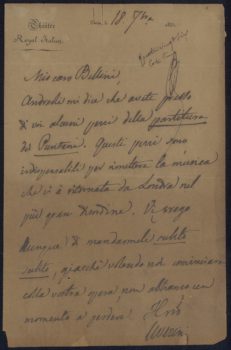 Théâtre
Royal Italien.
Paris, le 18 7bre 183
Mio caro Bellini,
Andreoli mi dice che avete presso
di voi alcuni pezzi della partitura
de' Puritani. Questi pezzi sono
indispensabili per rimettere la musica
che ci è ritornata da Londra nel
più gran disordine. Vi prego
dunque di mandarmele subito
subito, giacchè volendo noi cominciare
colla vostra opera, non abbiamo un
momento a perdere.